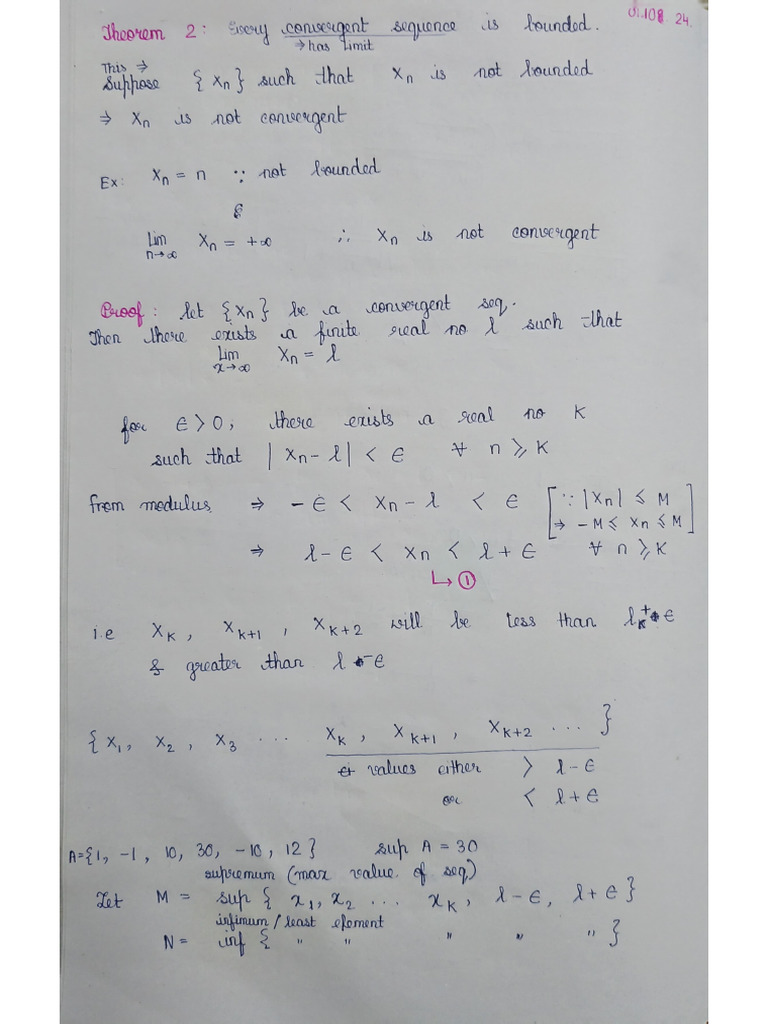 01.108 24.
Theorem 2 : Every convergent sequence is bounded.
→ has limit
This ⇒
Suppose {xn} such that xn is not bounded
⇒ xn is not convergent
Ex: xn = n ∵ not bounded
&
Lim n→∞ xn = +∞ ∴ xn is not convergent
Proof : let {xn} be a convergent seq.
Then there exists a finite real no l such that
Lim x→∞ xn = l
for ∈ > 0, there exists a real no K
such that |xn - l| < ∈ ∀ n ≥ K
from modulus ⇒ -∈ < xn - l < ∈ [∵ |xn| ≤ M
⇒ -M ≤ xn ≤ M]
⇒ l-∈ < xn < l+∈ ∀ n ≥ K
↳ ①
i.e xK, xK+1, xK+2 will be less than l + ∈
& greater than l - ∈
{x1, x2, x3 ... xK, xK+1, xK+2 ... }
values either > l-∈
or < l+∈
A={1, -1, 10, 30, -10, 12} sup A = 30
supremum (max value of seq)
Let M = sup { x1, x2 ... xK, l-∈, l+∈ }
infimum / least element
N = inf { " " " " " }